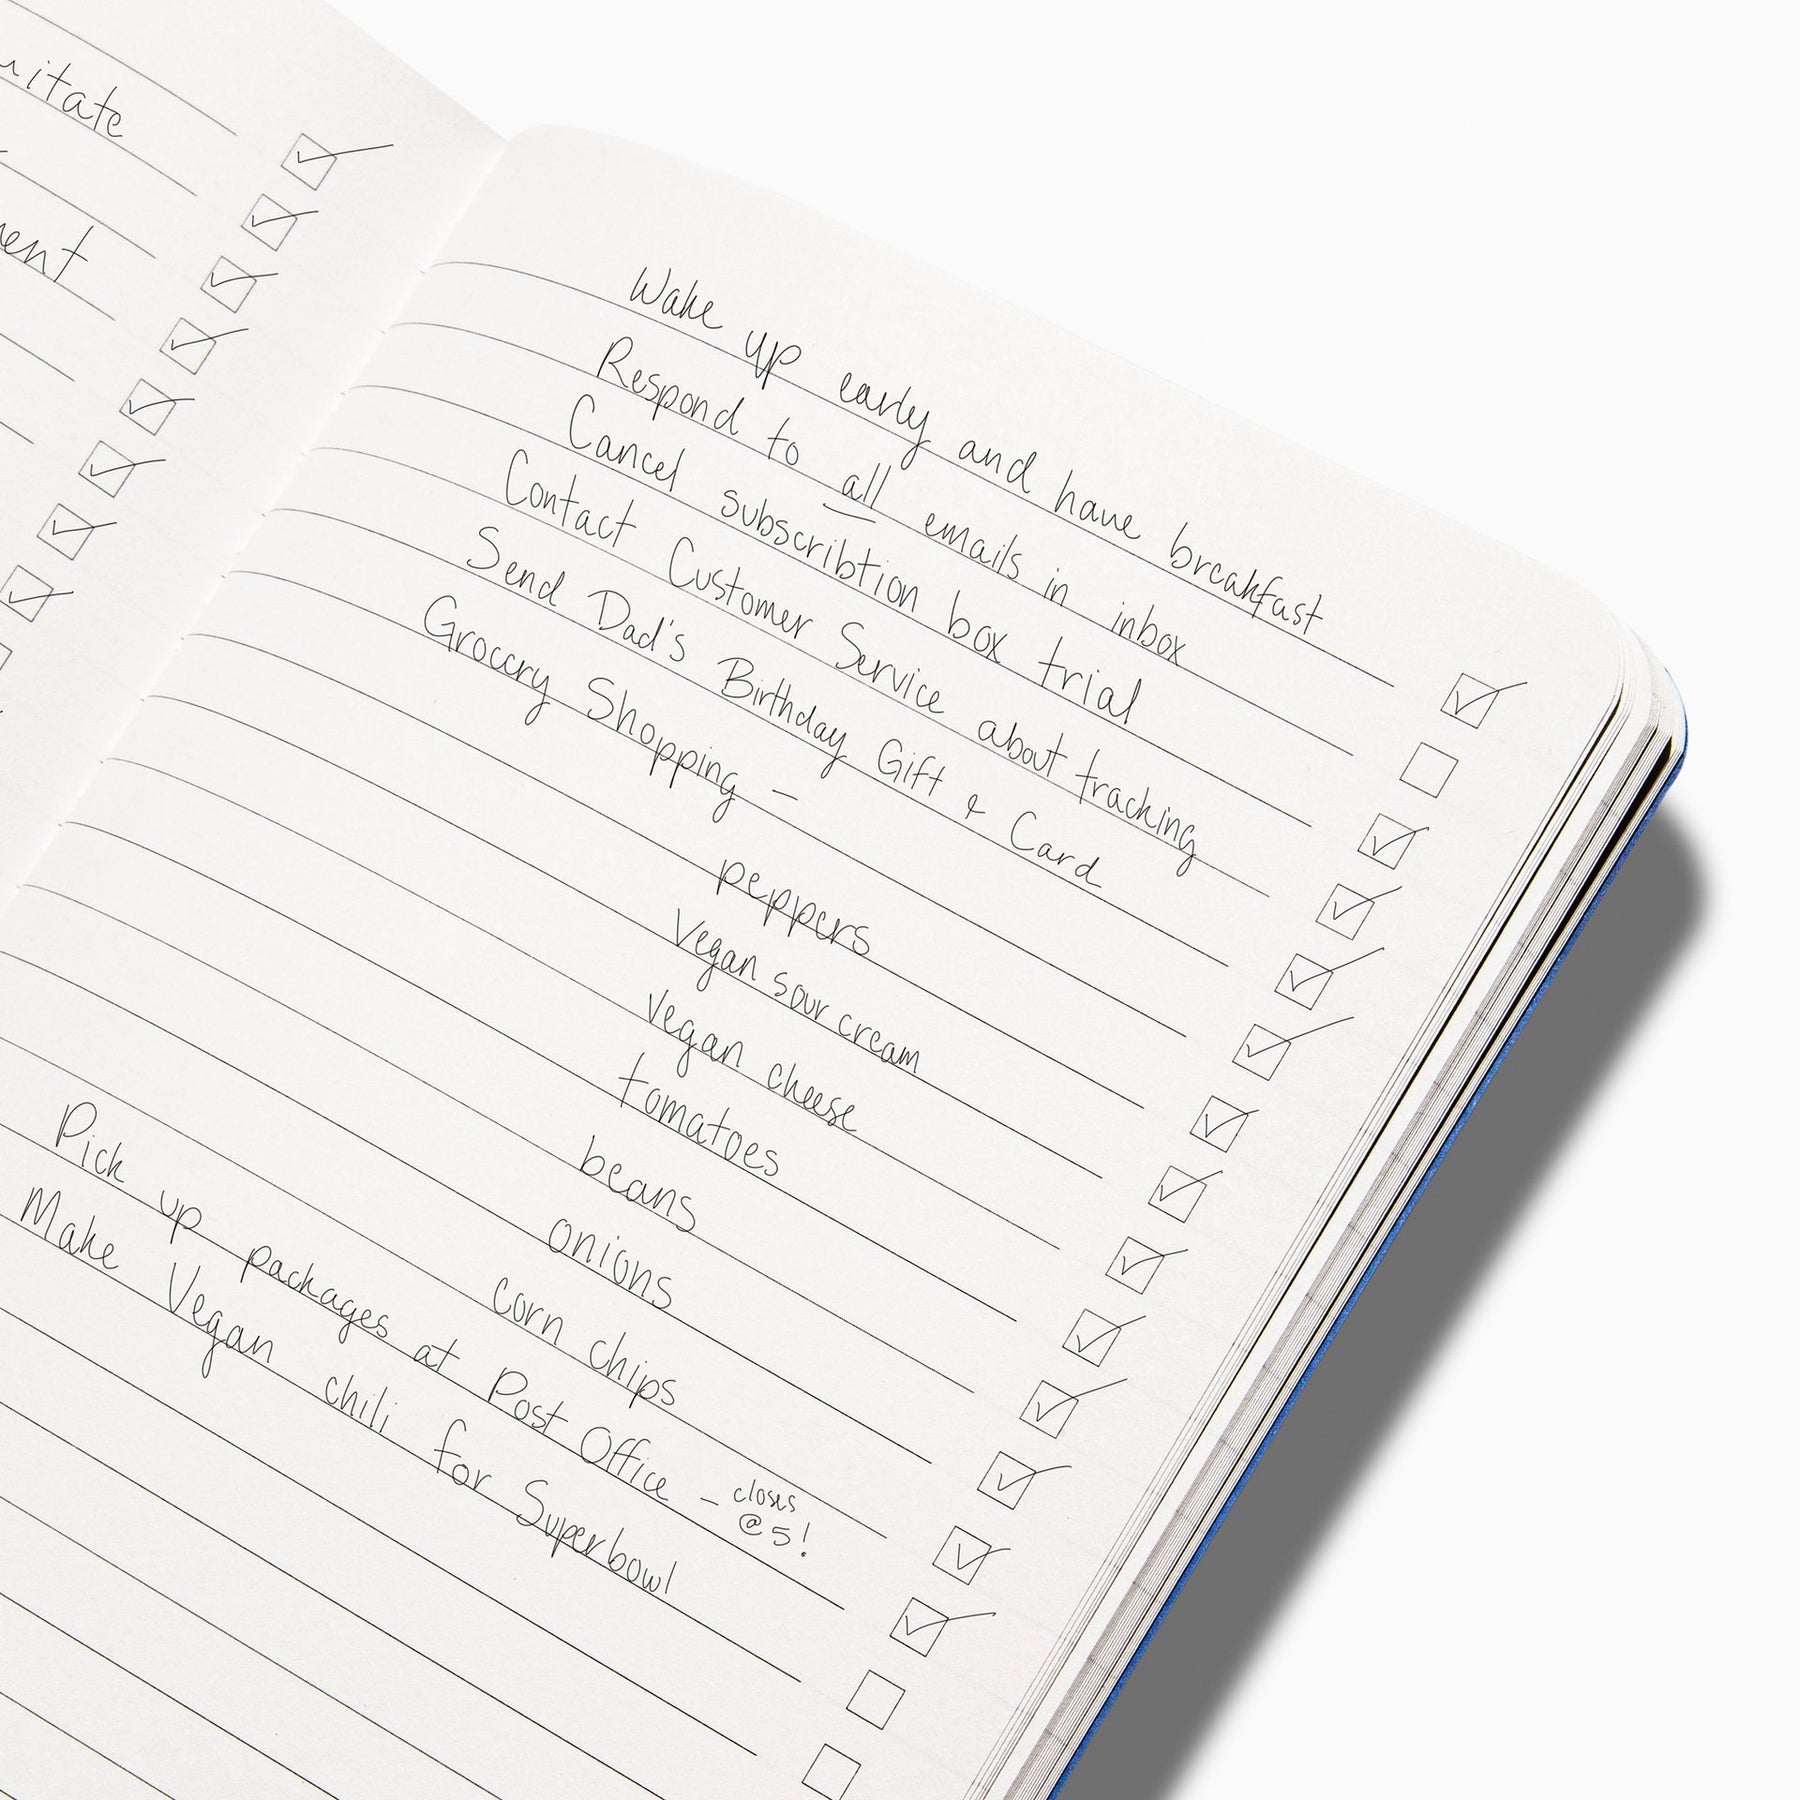 ment
Wake up early and have breakfast
Respond to all emails in inbox
Cancel subscribtion box trial
Contact Customer Service about tracking
Send Dad's Birthday Gift & Card
Grocery Shopping –
peppers
Vegan sour cream
Vegan cheese
tomatoes
beans
onions
corn chips
Pick up packages at Post Office – closes
@5!
Make Vegan chili for Superbowl